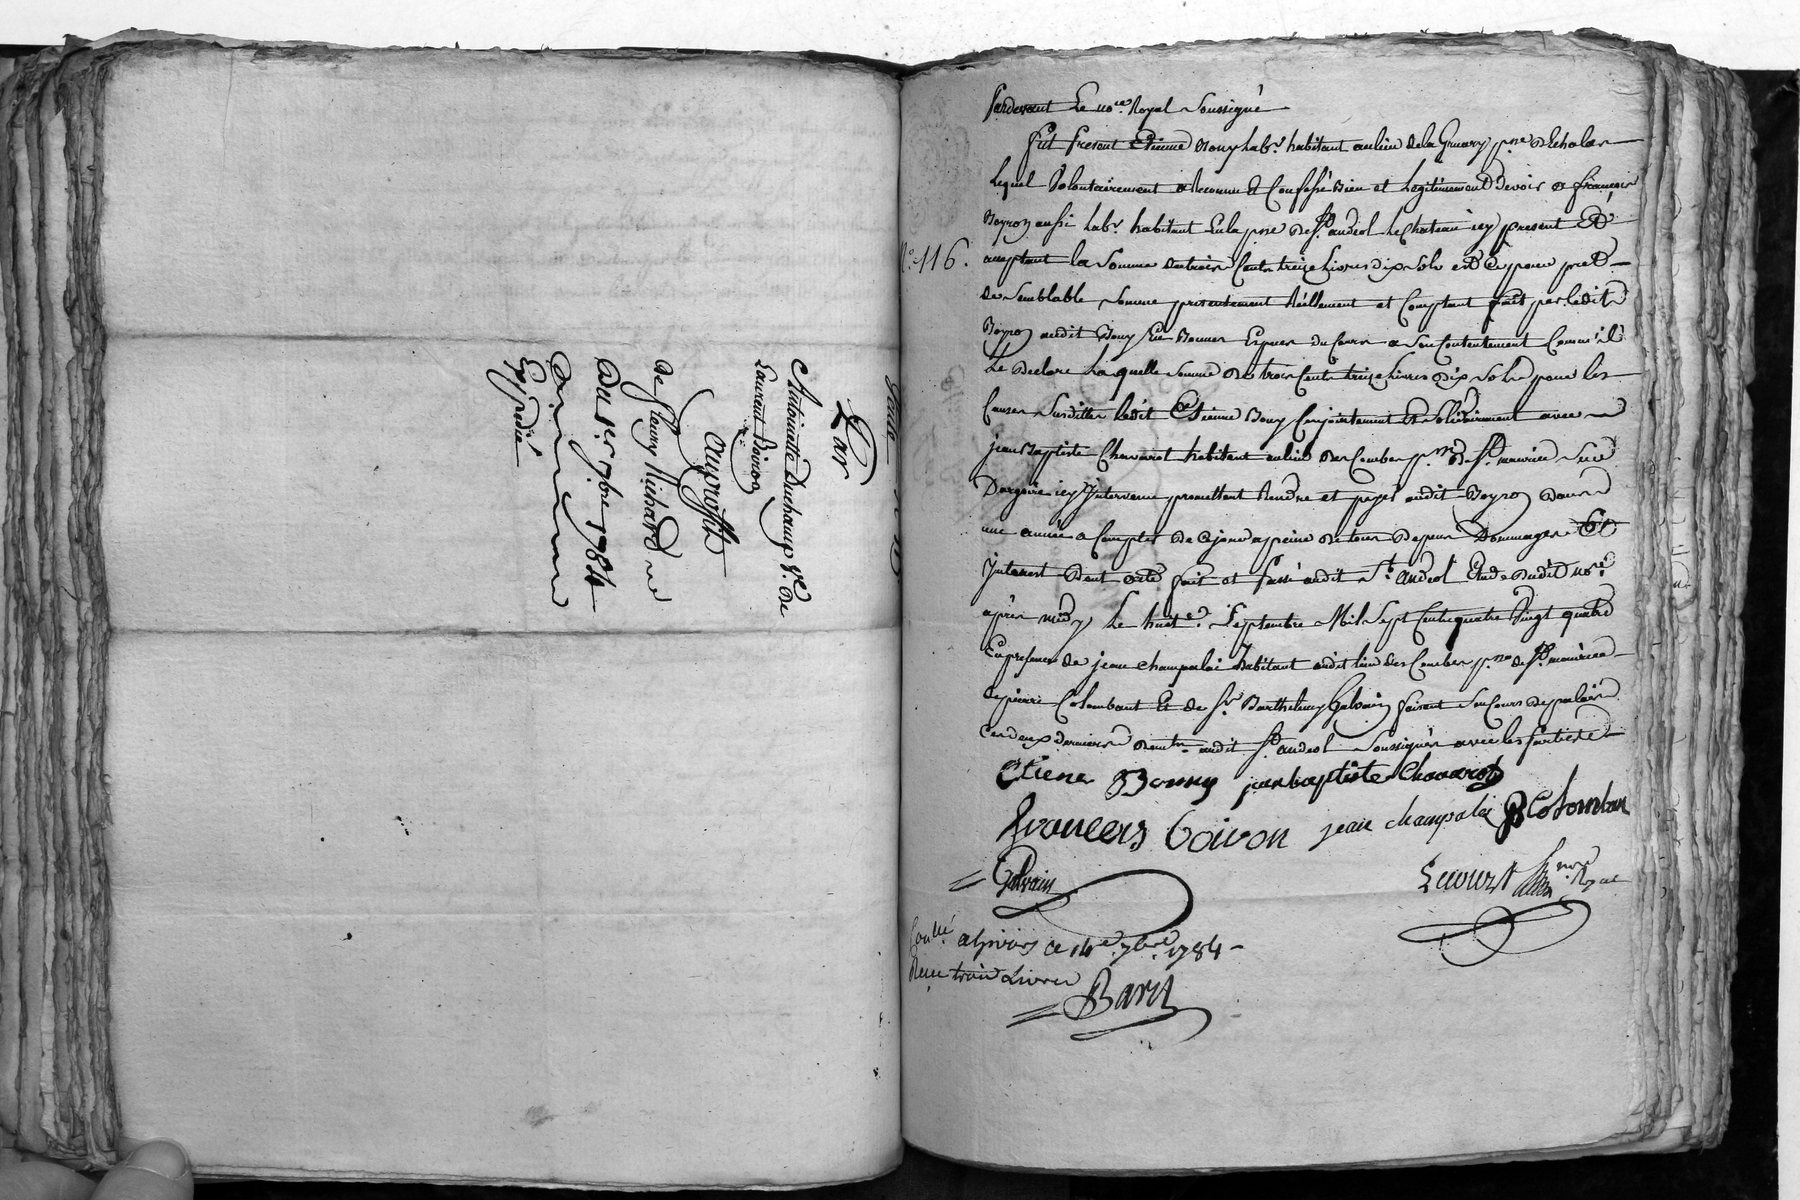 Par
Antoinette Duchamp v.e de
Laurent Boiron
au profit
de fleury Richard
Du 1er 7bre 1784
Expedié
N.o 116.
Pardevant Le no.re Royal Soussigné
fut Present Etienne Bony Lab.r habitant au lieu de la p.sse Dechalas
Lequel Volontairement a Reconnu Et Confessé Bien et Legitimement Devoir a françois
Boyron aussi Lab.r habitant En la p.sse de S.t andeol Le Chateau icy present Et
acceptant la Somme de trois Cents treize Livres dix Sols et Ce pour pret
de Semblable Somme presentement Réellement et Comptant fait par ledit
Boyron audit Bony En Bonnes Especes du Cours a Son Contentement Comm'il
Le Declare Laquelle Somme de trois Cents treize Livres dix Sols pour les
Causes Susdittes ledit Etienne Bony Conjointement Et Solidairement avec
jean Baptiste Chavarot habitant au lieu des Combes p.sse de S.t maurice Sur
Dargoire icy Intervenu promettent Rendre et payer audit Boyron Dans
une année a Compter de Ce jour a peine de tous Depens Dommages Et
Interest Dont acte fait et Passé audit S.t Andeol Etude dudit no.re
après midy Le huit Septembre Mil Sept Cent quatre Vingt quatre
En presence de jean Champalai habitant audit lieu des Combes p.sse de S.t maurice
de pierre Colombant Et de S.r Barthelemy Galvain faisant Son Cours de palais
Ces deux derniers audit S.t andeol Soussignés avec les Parties
Etiene Bonny jean baptiste Chavarot
francois boivon jean champalai P Colomban
Galvain
Lecourt no.re Royal
Con.llé a Givors ce 14e 7bre 1784
Reçu trois Livres
Baret